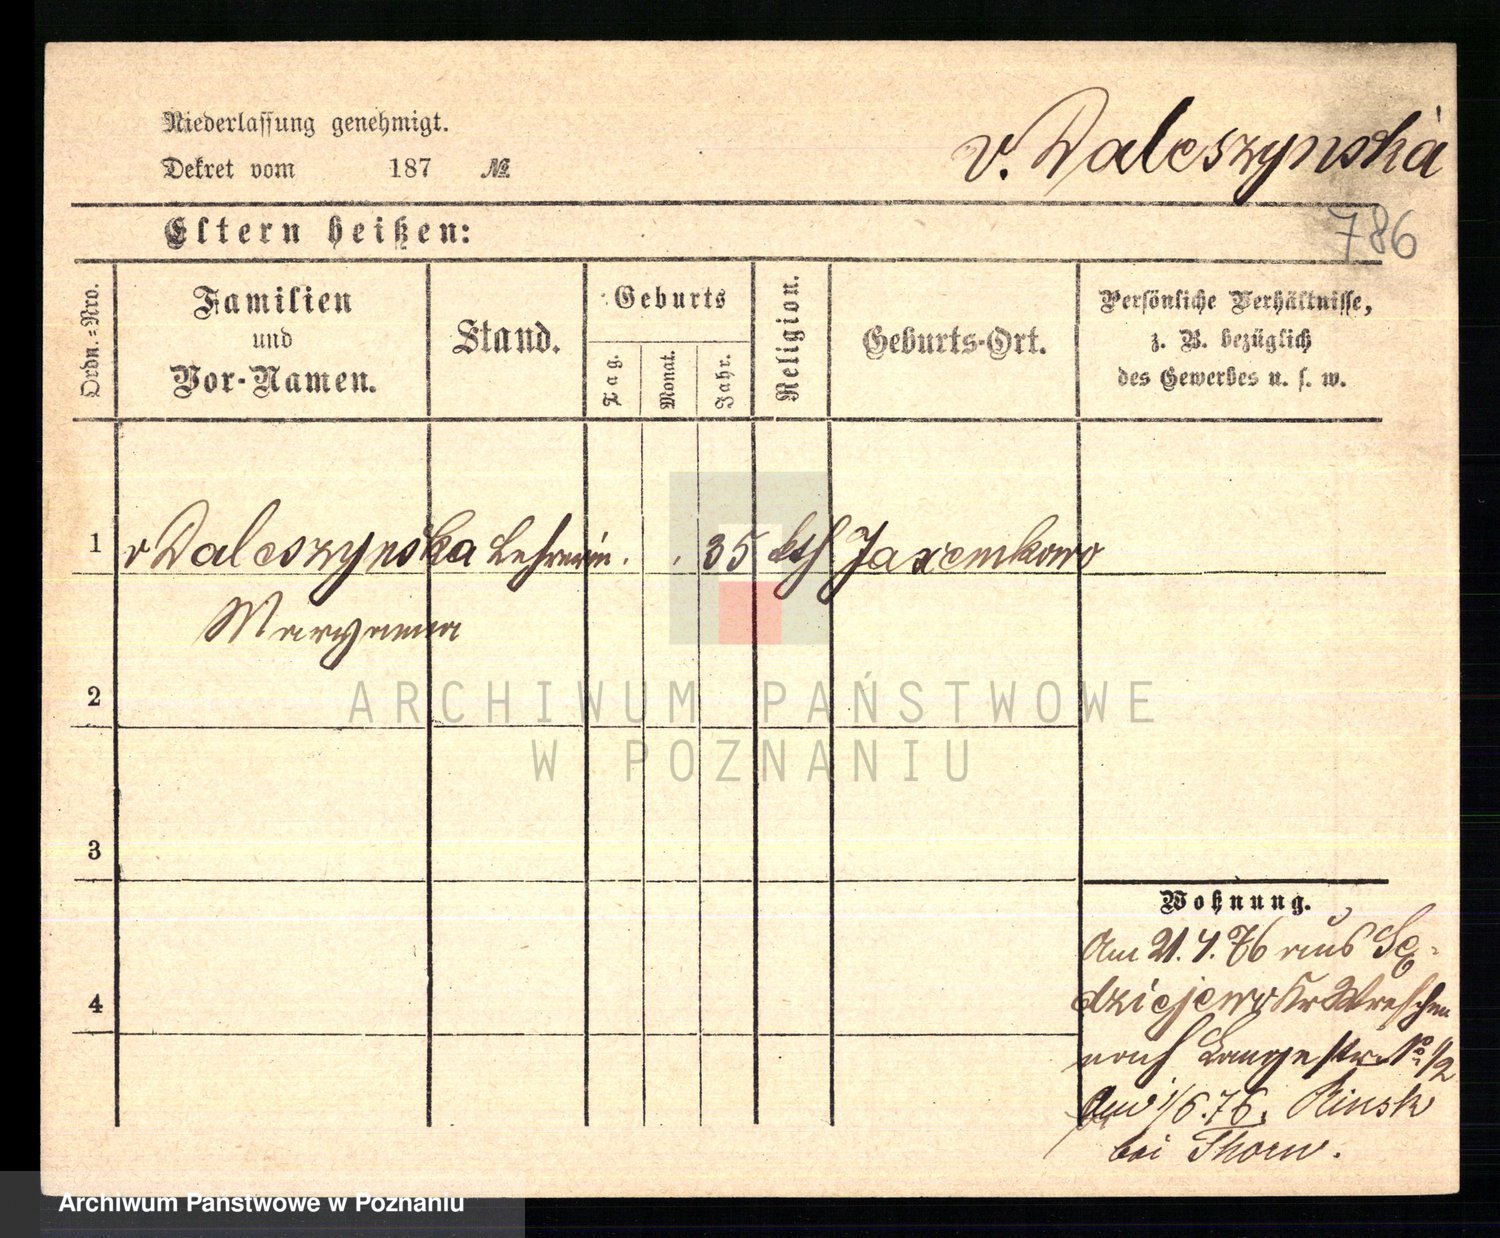 Niederlassung genehmigt.
Dekret vom 187 №
v. Daleszynska
786
Eltern heißen:
Ordn.-Nro.
Familien
und
Vor-Namen.
Stand.
Geburts
Tag.
Monat.
Jahr.
Religion.
Geburts-Ort.
Persönliche Verhältnisse,
z. B. bezüglich
des Gewerbes u. s. w.
1 v Daleszynska Lehrerin . . 35 kth Jaxemkowo
Maryanna
2
3
4
Wohnung.
Am 21.4.76 aus Sę-
dziejewo Kr Wreschen
nach Langestr. No 1/2
1/6.76. Pinsk
bei Thorn.
ARCHIWUM PAŃSTWOWE
W POZNANIU
Archiwum Państwowe w Poznaniu